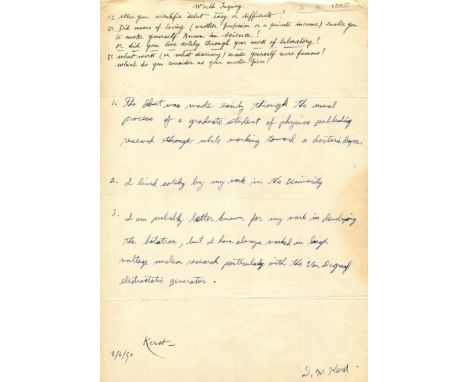 World Inquiry
1?. Were your scientific debut easy or difficult?
2?. Did means of living (another profession or a private income) enable you
to make yourself known in science?
or did you live solely through your work of laboratory?
3?. What work (or what discovery) made yourself more famous?
which do you consider as your master piece?
1. The debut was made easily through the usual
process of a graduate student of physics publishing
research through while working toward a doctor's degree.
2. I lived solely by my work in the University
3. I am probably better known for my work in developing
the betatron, but I have always worked in high
voltage nuclear research particularly with the Van de graaf
electrostatic generator.
Kerst
2/6/50
D. W. Kerst